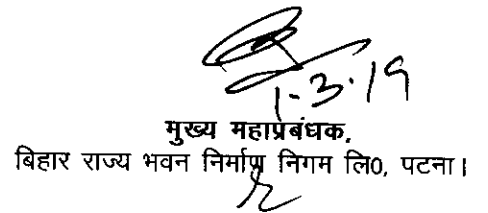 1-3-19
मुख्य महाप्रबंधक,
बिहार राज्य भवन निर्माण निगम लि0, पटना।